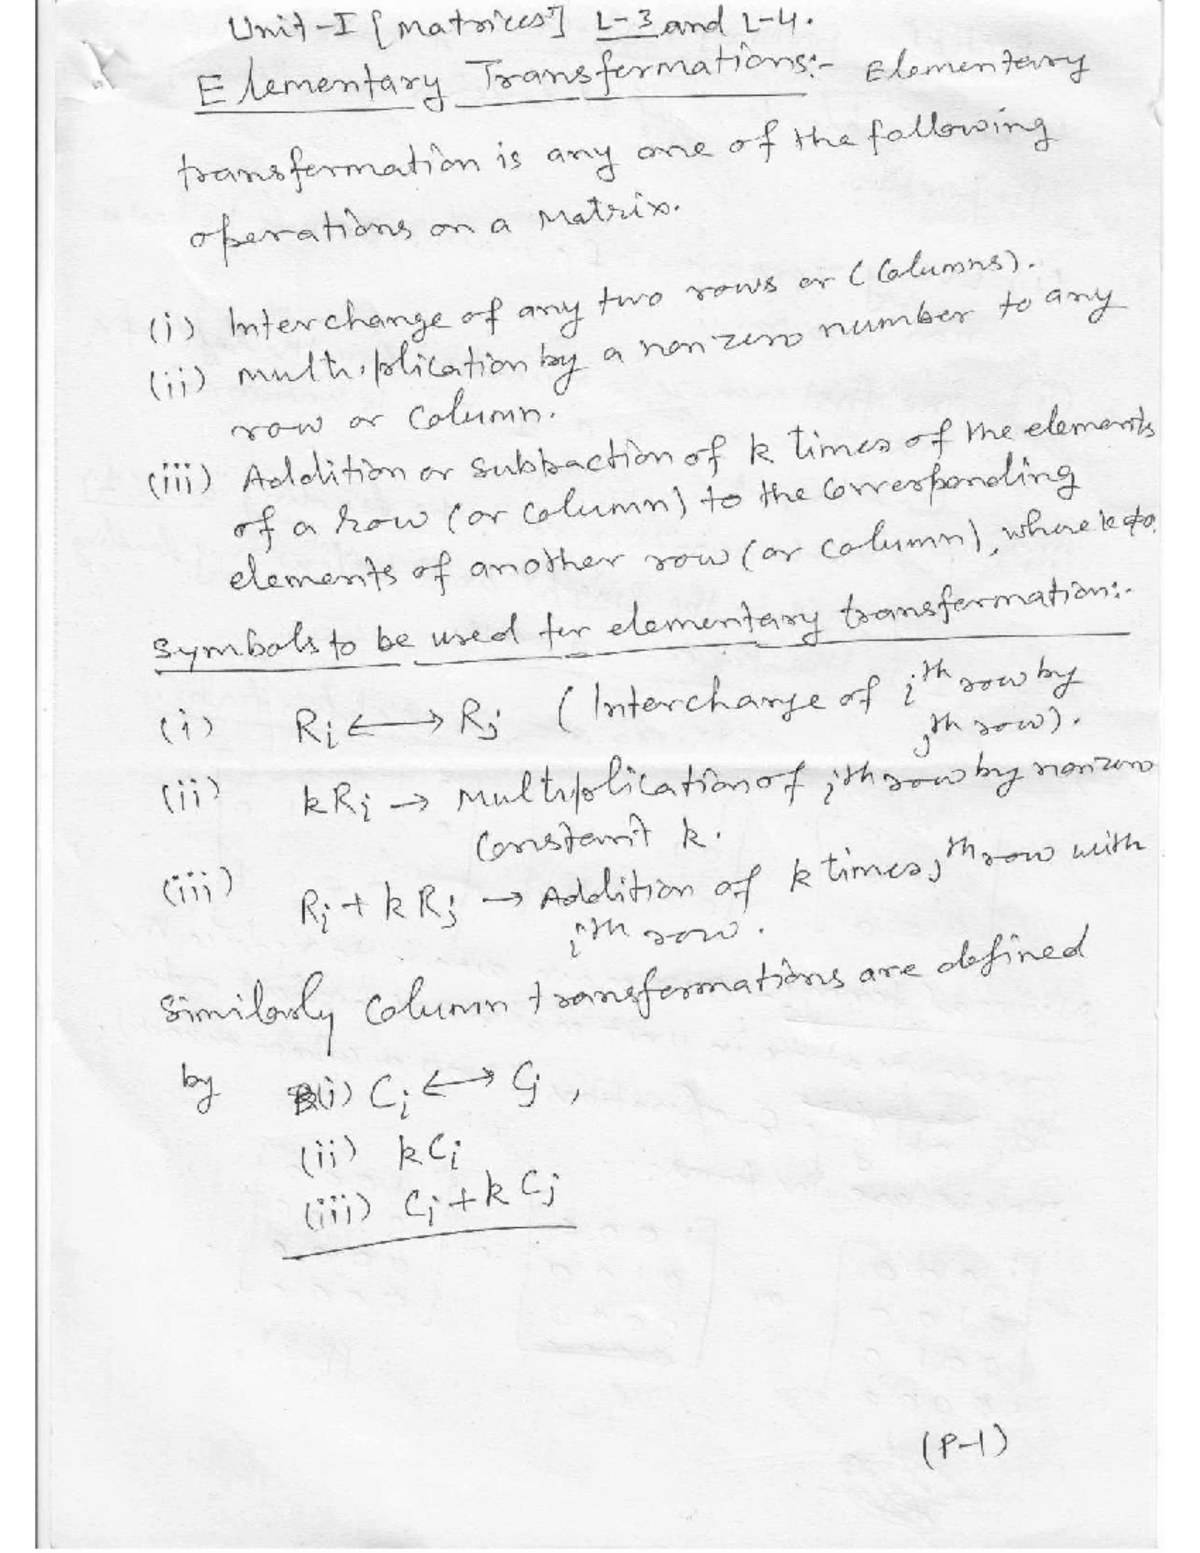 Unit-I [Matrices] L-3 and L-4.
Elementary Transformations:- Elementary
transformation is any one of the following
operations on a Matrix.
(i) Interchange of any two rows or (Columns).
(ii) multiplication by a non zero number to any
row or Column.
(iii) Addition or Subtraction of k times of the elements
of a row (or Column) to the Corresponding
elements of another row (or column), where k≠0.
Symbols to be used for elementary transformation:-
(i) Ri ⟷ Rj (Interchange of ith row by
jth row).
(ii) kRi → Multiplication of ith row by nonzero
Constant k.
(iii) Ri + k Rj → Addition of k times jth row with
ith row.
Similarly Column transformations are defined
by (i) Ci ⟷ Cj,
(ii) kCi
(iii) Ci + k Cj
(P-1)